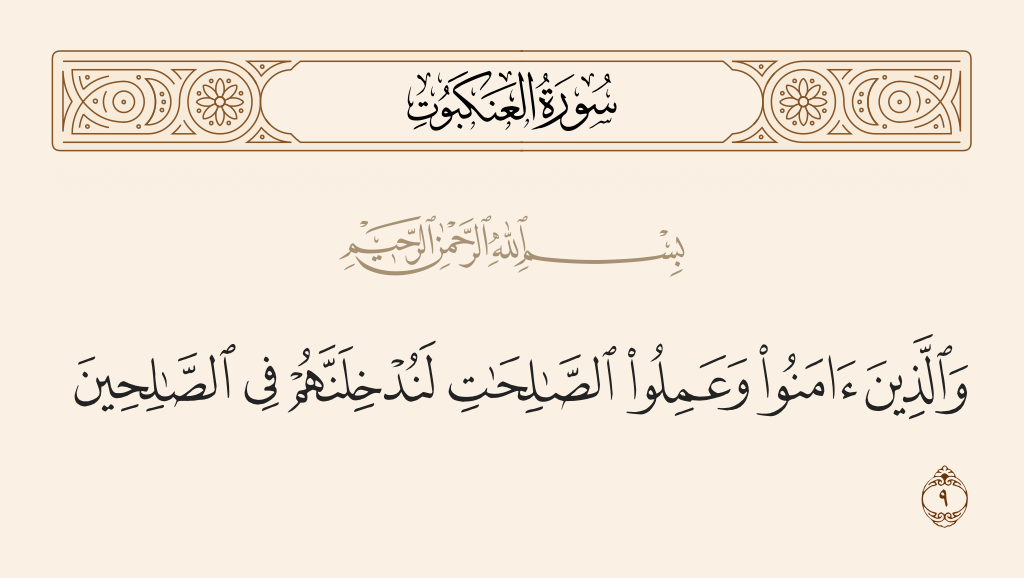 سُورَةُ العَنكَبُوتِ
بِسْمِ ٱللَّهِ ٱلرَّحْمَٰنِ ٱلرَّحِيمِ
وَٱلَّذِينَ ءَامَنُوا۟ وَعَمِلُوا۟ ٱلصَّٰلِحَٰتِ لَنُدْخِلَنَّهُمْ فِى ٱلصَّٰلِحِينَ
٩